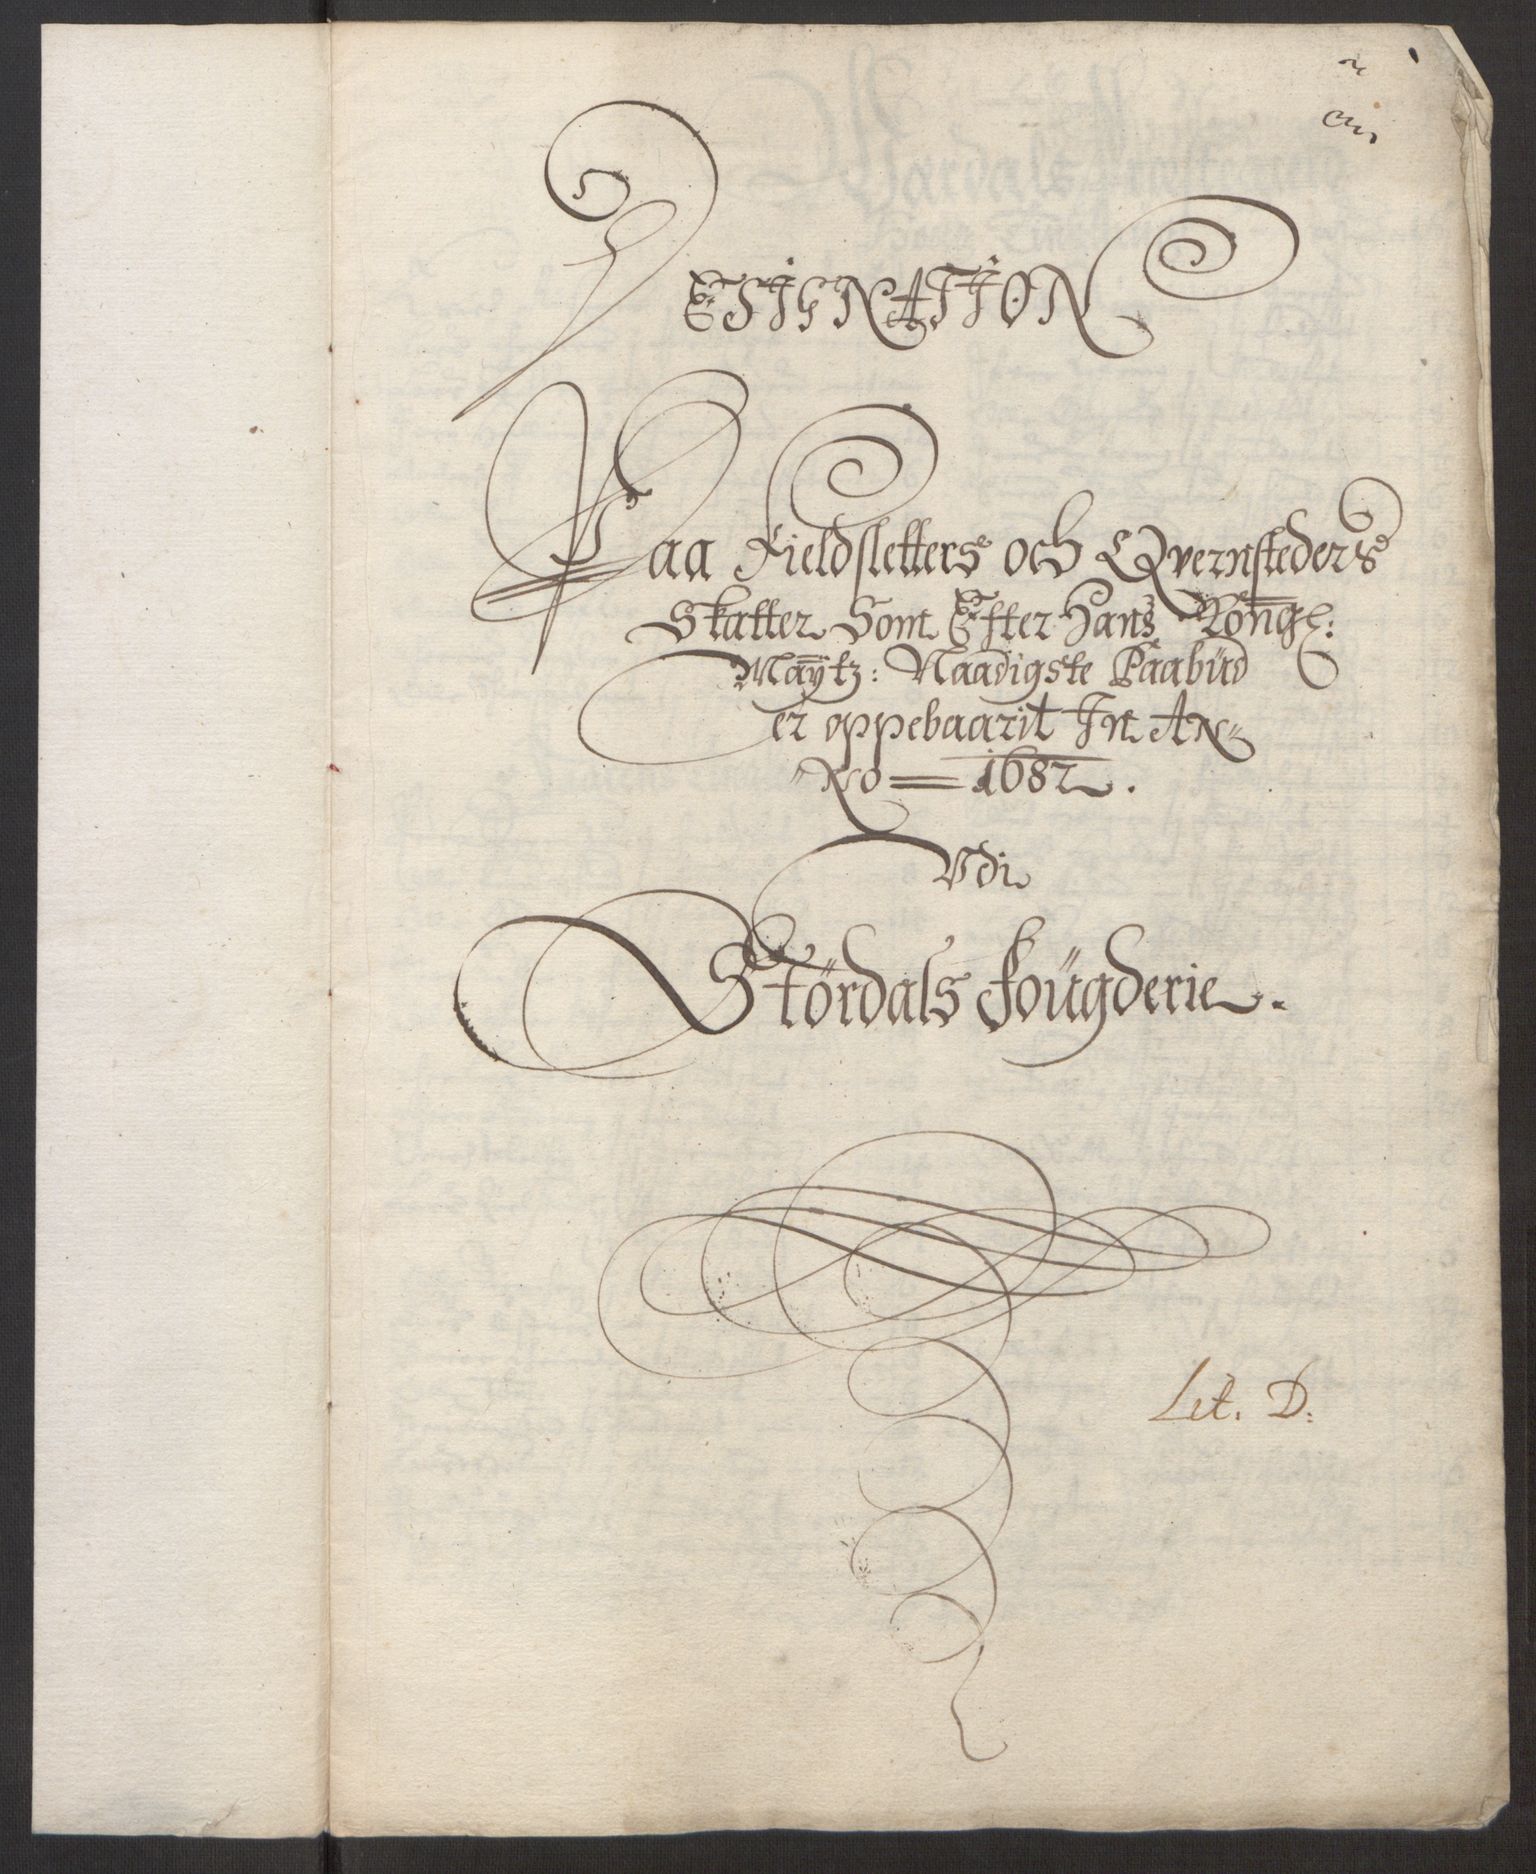 DESIGNATION
Paa Fieldsletters och Qvernsteders
Skatter Som Efter Hans Kongl:
Maÿtz: Naadigste Paabüd
er oppebaarit In An-
"no = 1682.
Vdi
Stördals Foügderie.
Lit. D: